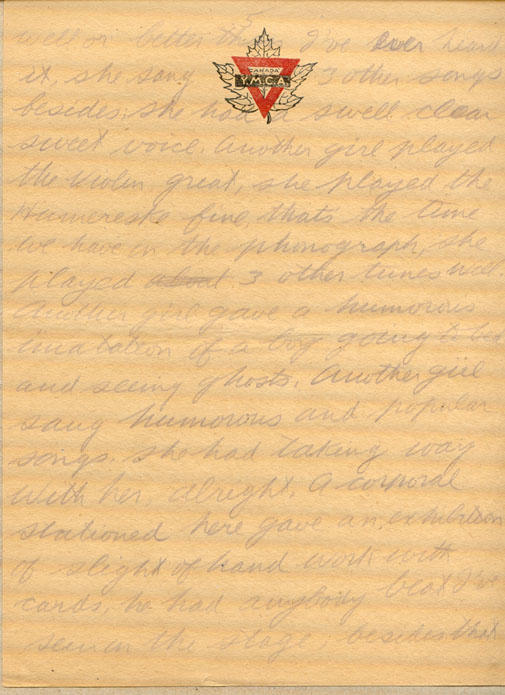 well or better than I've ever heard
CANADA
Y.M.C.A.
it, she sang 3 other songs
besides, she had a swell clear
sweet voice. Another girl played
the violin great, she played the
Humereske fine, thats the tune
we have on the phonograph, she
played about 3 other tunes well.
Another girl gave a humorous
imatation of a boy going to bed
and seeing ghosts. Another girl
sang humorous and popular
songs. she had taking way
with her, alright. A corporal
stationed here gave an exhibition
of slight of hand work with
cards, he had anybody beat I've
seen on the stage, besides that